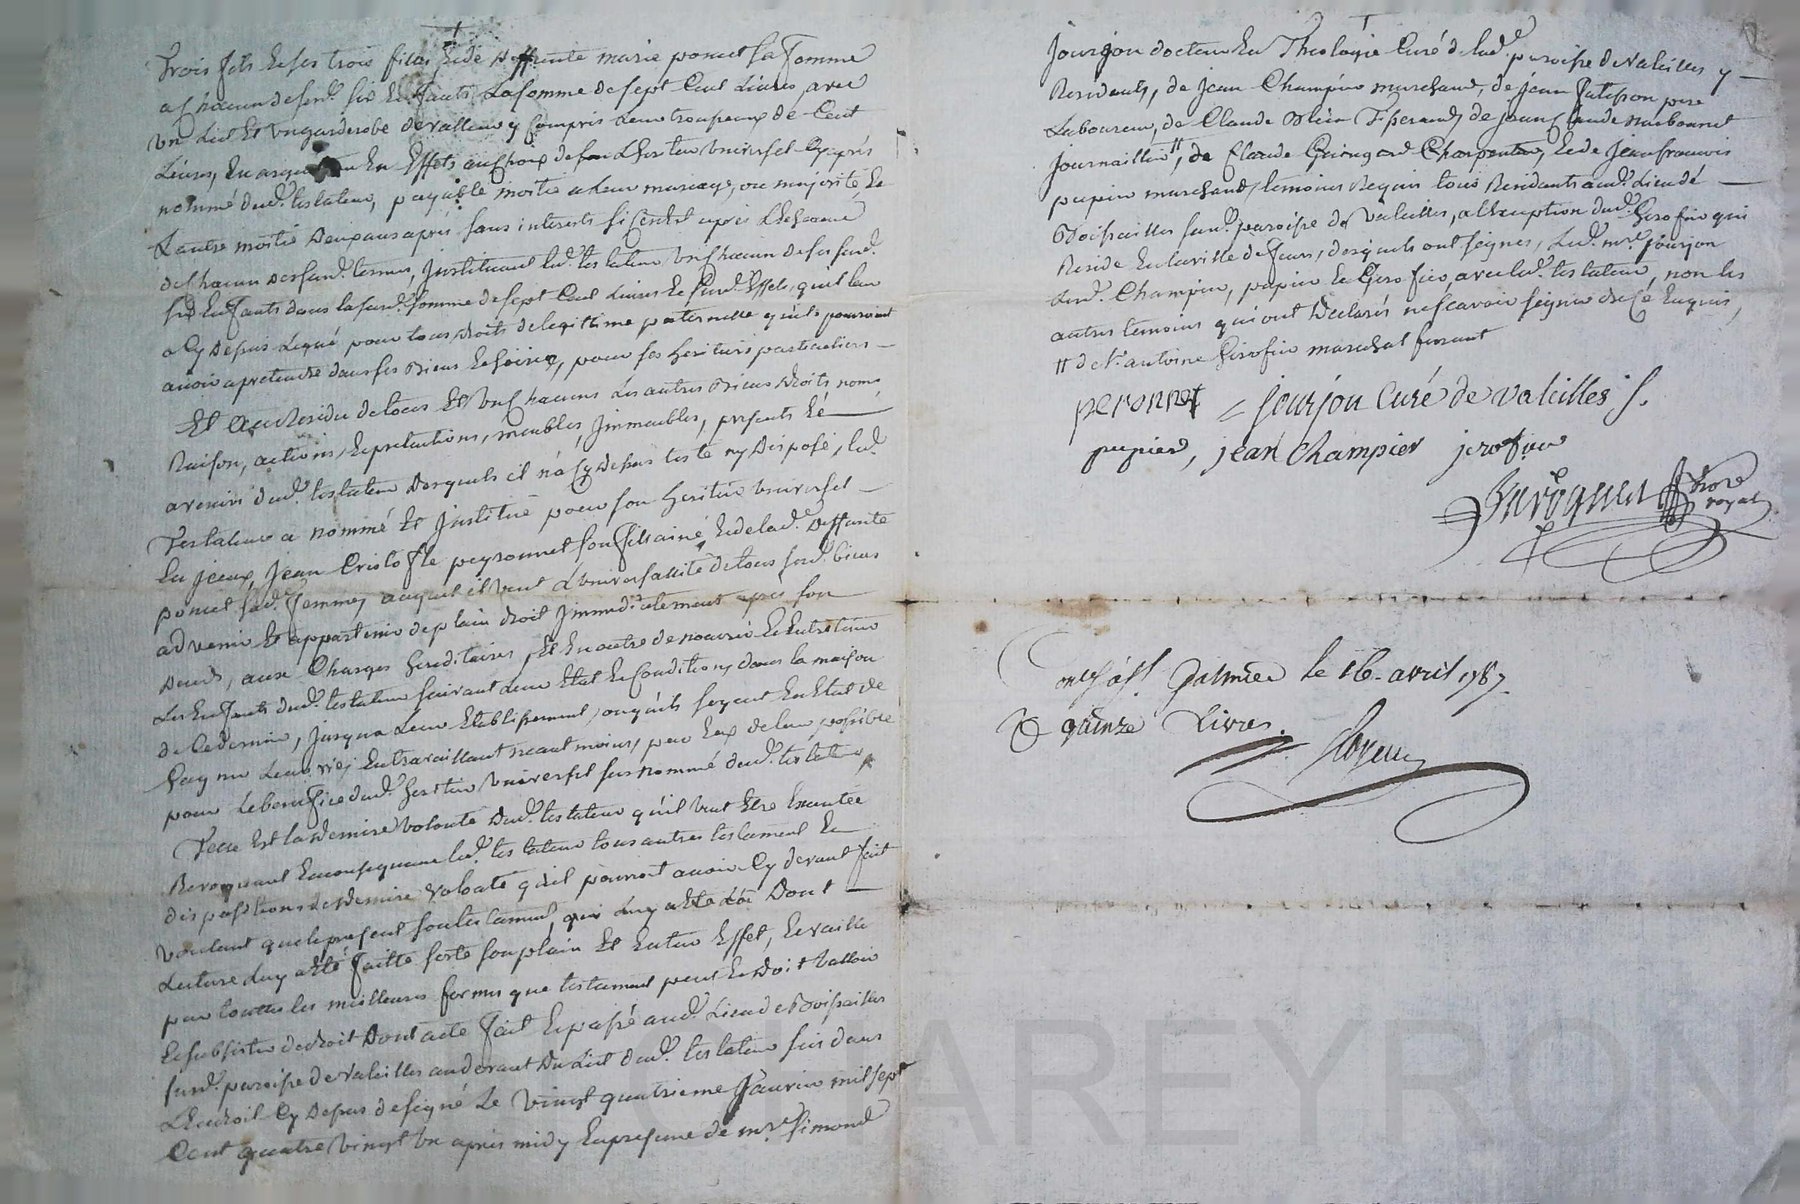 trois fils et ses trois filles et de deffunte marie poncet sa femme
a chacun desd. six enfants la somme de sept cent Livres, avec
un Lict et un garderobe de valleur y compris leur trousseaux de Cent
Livres, en argent ou en Effets au choix de son heritier universel cy après
nommé dud. testateur, payable moitié a leur mariage, ou majorité, et
L'autre moitié deux ans après sans interests si ce n'est après L'echeance
de chacun desd. termes, Instituant led. testateur un chacun de ses sud.
six Enfants dans lasud. somme de sept Cent Livres et sud. Effets, qu'il leur
a Cy depuis Legué pour tous droits de legittime paternelle qu'ils pourroient
avoir a pretendre dans ses Biens et hoirie, pour ses heritiers particuliers
Et au Residu de tous Et un chacuns Les autres Biens droits noms
Raison, actions, et pretentions, meubles, Immeubles, presents et
avenirs dud. testateur desquels il n'a Cy dessus testé ny disposé, led.
Testateur a nommé Et Institué pour son heritier universel
Jean Cristofle peyronnet son fils ainé, et de lad. deffunte
poncet sad. femme, auquel il veut L'universallité de tous sesd. biens
advenir Et appartenir de plain droit Immediatement après son
deceds, aux Charges hereditaires, Et En outre de nourrir Et Entretenir
Les Enfants dud. testateur suivant leur Etat et Conditions dans la maison
de Ce dernier, jusqua Leur Etablissement, ou qu'ils soyent En Etat de
Gagner Leur vie, En travaillant neantmoins, par Eux de leur possible
pour Le benefice dud. heritier universel sus nommé dud. testateur
Telle Est la derniere volonté dud. testateur qu'il veut Etre Executée
Revoquant En consequence led. testateur tous autres testament Et
dispositions de derniere volonté qu'il pourroit avoir Cy devant fait
voulant que le present son testament, qui Luy a Eté Lû Dont
Lecture Luy a Eté faitte sorte son plain Et Entier Effet, Et vaille
par touttes les meilleures formes que testament peut Et doit valloir
Et subsister de droit Dont acte fait Et passé aud. Lieu de Boissailles
susd. paroisse de Valeilles au devant du Lict dud. testateur sis dans
L'Endroit Cy dessus designé Le vingt quatrieme fevrier mil sept
Cent quatre vingt un après midy En presence de mre. Simond
Jourjon docteur En Theologie Curé de lad. paroisse de Valeilles y
Residents, de Jean Champier marchand, de Jean pere
Laboureur, de Claude de Jean Claude narbonnet
Journaillier", de Claude Charpentier, Et de Jean francois
pupier marchand, temoins Requis tous Residants aud. Lieu de
Boissailles susd. paroisse de Valeilles, a L'Exception dud. Girofier qui
Reside En la ville de feurs, desquels ont signés, Led. mre. Jourjon
Led. Champier, pupier Et Girofier, avec led. testateur, non les
autres temoins qui ont declarés ne scavoir signer de ce Enquis,
" de Sr. antoine Girofier marechal ferrant
peronnet = Jourjon Curé de valeilles s.
pupier, jean Champier jerofier
nore
royal
onllé à St. Galmier le 16. avril 1787.
R quinze Livres.